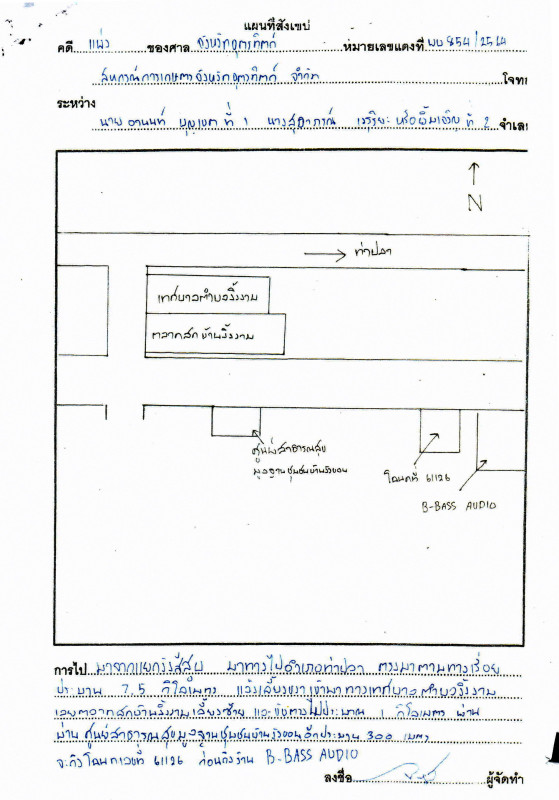 แผนที่สังเขป
คดี แพ่ง ของศาล จังหวัดอุตรดิตถ์ หมายเลขแดงที่ ผบ 854/2564
สหกรณ์การเกษตรจังหวัดอุตรดิตถ์ จำกัด โจท
ระหว่าง
นาย อานนท์ บุญเขต ที่ 1 นางสุดาภรณ์ หรือ ที่ 2 จำเล
N
ท่าปลา
เทศบาลตำบลงิ้วงาม
ตลาดสด บ้านงิ้วงาม
ศูนย์สาธารณสุข
มูลฐานชุมชนบ้านวังยอน
โฉนดที่ 61126
B-BASS AUDIO
การไป มาจากแยกวังสีสูบ มาทางไปอำเภอท่าปลา ตรงมาตามทางเรื่อย
ประมาณ 7.5 กิโลเมตร แล้วเลี้ยวขวาเข้ามาทางเทศบาลตำบลงิ้วงาม
เลยตลาดสดบ้านงิ้วงามเลี้ยวซ้าย และขับตรงไปประมาณ 1 กิโลเมตร ผ่าน
ผ่าน ศูนย์สาธารณสุขมูลฐานชุมชนบ้านวังยอนอีกประมาณ 300 เมตร
จะถึงโฉนดเลขที่ 61126 ก่อนถึงร้าน B-BASS AUDIO
ลงชื่อ ผู้จัดทำ